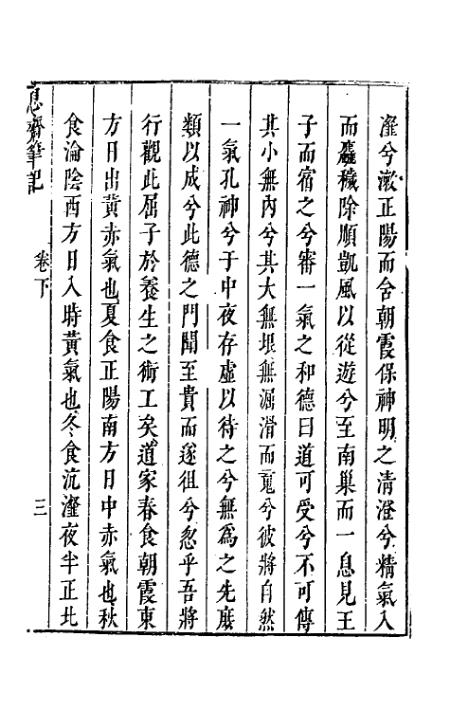 瀣兮漱正陽而含朝霞保神明之清澄兮精氣入
而麤穢除順凱風以從遊兮至南巢而一息見王
子而宿之兮審一氣之和德曰道可受兮不可傳
其小無內兮其大無垠無滑滑而䰟兮彼將自然
一氣孔神兮于中夜存虛以待之兮無為之先庶
類以成兮此德之門聞至貴而遂徂兮忽乎吾將
行觀此屈子於養生之術工矣道家春食朝霞東
方日出黃赤氣也夏食正陽南方日中赤氣也秋
食淪陰西方日入時黃氣也冬食沆瀣夜半正北
息齋筆記
卷下
三